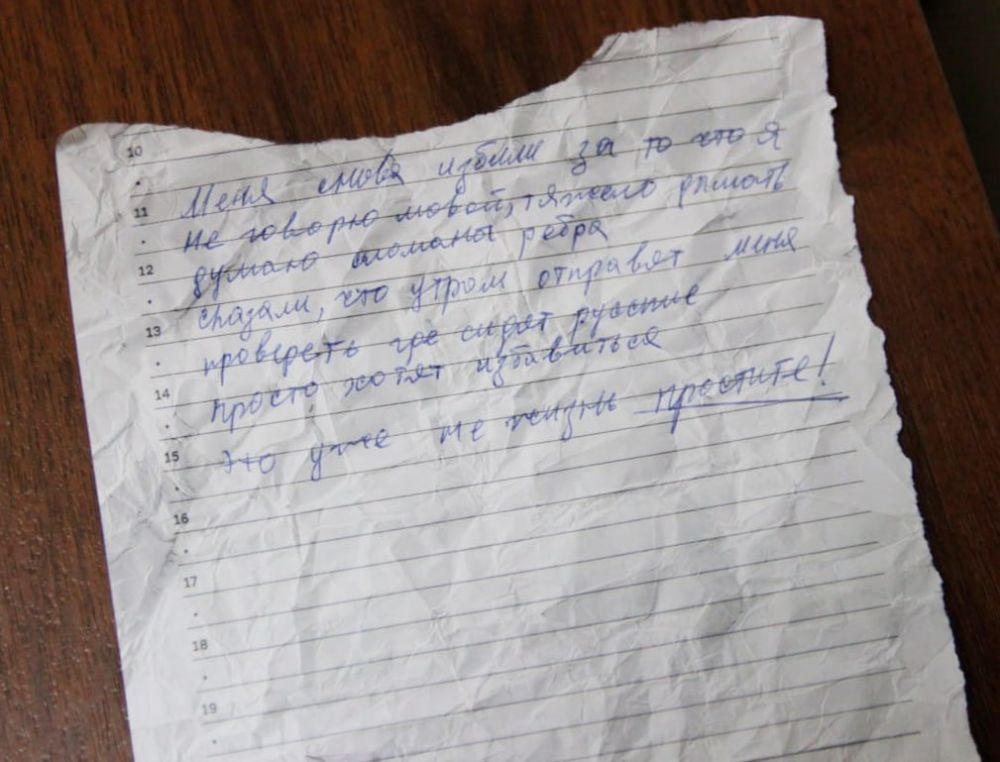 10
Меня снова избили за то что я
11
не говорю мовой, тяжело дышать
12
думаю сломаны ребра
сказали, что утром отправят меня
13
проверсть где сидят русские
14
просто хотят избавиться
15
это уже не жизнь простите!
16
17
18
19